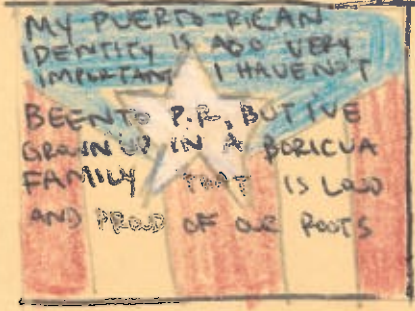 MY PUERTO RICAN
IDENTITY IS ALSO VERY
IMPORTANT I HAVE NOT
BEEN TO P.R., BUT I'VE
GROWN UP IN A BORICUA
FAMILY THAT IS LOUD
AND PROUD OF OUR ROOTS